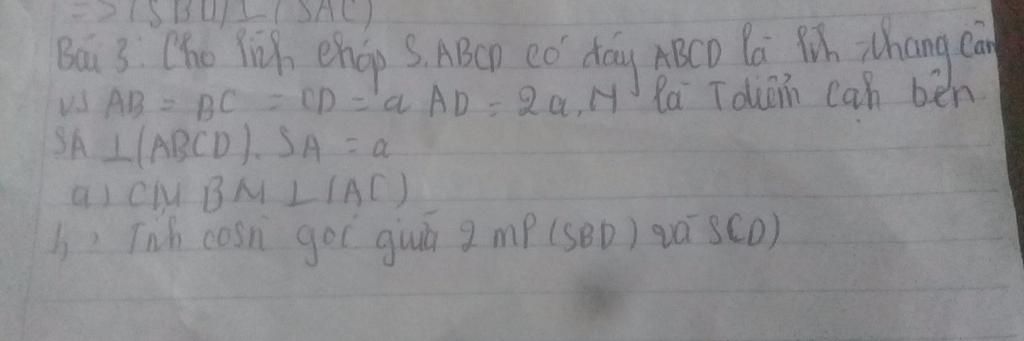 => (SBD) ⊥ (SAC)
Bài 3: Cho hình chóp S.ABCD có đáy ABCD là hình thang cân
vs AB = BC = CD = a AD = 2a, M là T điểm cạh bên
SA ⊥ (ABCD). SA = a
a) CM BM ⊥ (AC)
b, Tính cosin góc giữa 2 mp (SBD) và SCD)